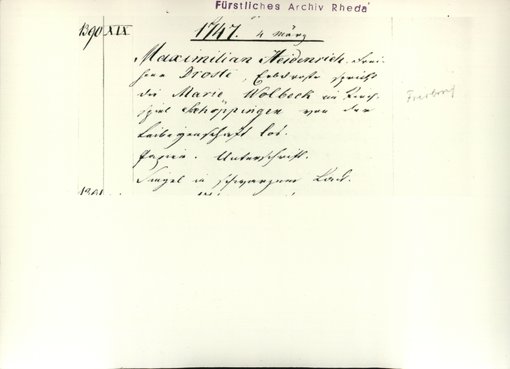 Fürstliches Archiv Rheda
1390 XIX 1747. 4 März
Maximilian Heidenrich, Frei-
herr Droste, Erbdroste spricht
die Marie Wolbeck im Kirch-
spiel Schöppingen von der
Leibeigenschaft los.
Freibrief
Papier. Unterschrift.
Siegel in schwarzem Lack.
1391